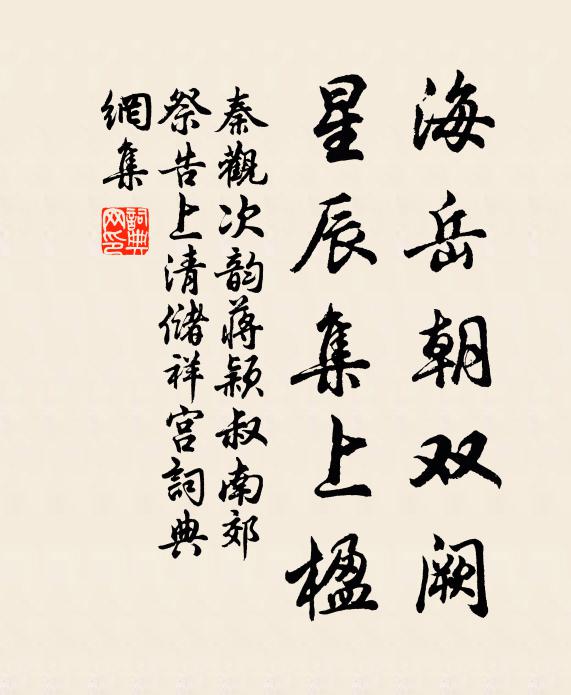 海岳朝双阙
星辰集上楹
秦觀次韵蒋颖叔南郊
祭告上清储祥宫詞典
網集
詞典网印